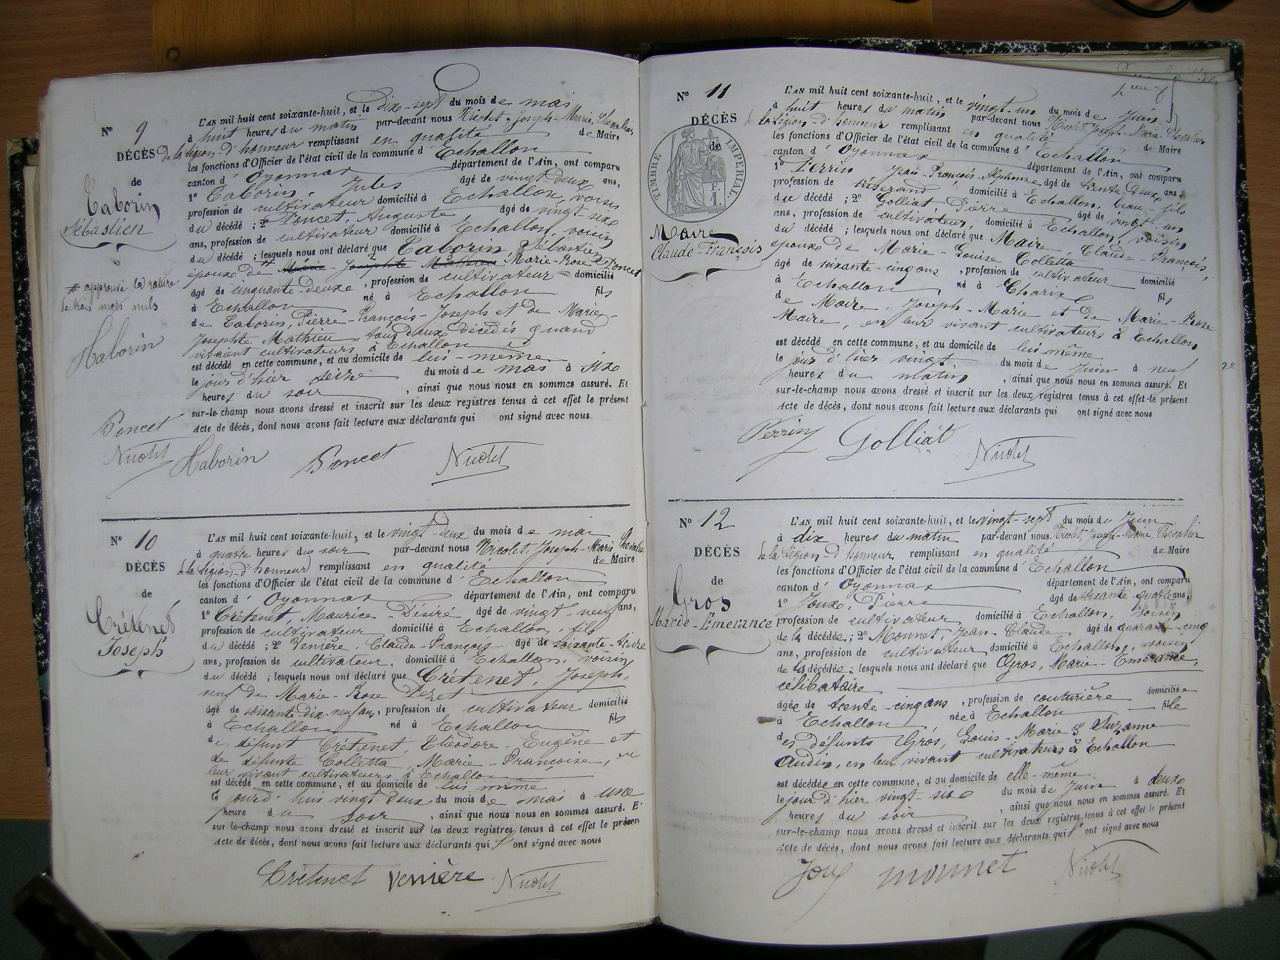 N° 9
DÉCÈS
de
Taborin
Sébastien
L'AN mil huit cent soixante-huit, et le dix-sept du mois de mai
à huit heures du matin par-devant nous Joseph-Marie, Chevalier
de la légion d'honneur remplissant en qualité de Maire
les fonctions d'Officier de l'état civil de la commune d'Echallon
canton d'Oyonnax département de l'Ain, ont comparu
1° Taborin, Jules âgé de vingt deux ans,
profession de cultivateur domicilié à Echallon, voisin
du décédé ; 2° Poncet, Auguste âgé de vingt six
ans, profession de cultivateur domicilié à Echallon, voisin
du décédé ; lesquels nous ont déclaré que Taborin Sébastien
époux de Marie-Rose Poncet
âgé de cinquante-deux, profession de cultivateur domicilié
à Echallon né à Echallon fils
de Taborin, Pierre-François-Joseph et de Marie-
Josephte Mathieu tous deux décédés quand
vivaient cultivateurs à Echallon
est décédé en cette commune, et au domicile de lui-même
le jour d'hier seize du mois de mai à six
heures du soir, ainsi que nous nous en sommes assuré. Et
sur-le-champ nous avons dressé et inscrit sur les deux registres tenus à cet effet le présent
acte de décès, dont nous avons fait lecture aux déclarants qui ont signé avec nous.
Taborin
Poncet
Taborin Poncet
N° 10
DÉCÈS
de
Crétenet
Joseph
L'AN mil huit cent soixante-huit, et le vingt deux du mois de mai
à quatre heures du soir par-devant nous Joseph-Marie Chevalier
de la légion d'honneur remplissant en qualité de Maire
les fonctions d'Officier de l'état civil de la commune d'Echallon
canton d'Oyonnax département de l'Ain, ont comparu
1° Crétenet, Maurice-Désiré âgé de vingt neuf ans,
profession de cultivateur domicilié à Echallon, fils
du décédé ; 2° Venière, Claude-François âgé de soixante-
ans, profession de cultivateur, domicilié à Echallon, voisin
du décédé ; lesquels nous ont déclaré que Crétenet, Joseph,
veuf de Marie-Rose
âgé de soixante-dix neuf ans, profession de cultivateur domicilié
à Echallon né à Echallon fils
de défunt Crétenet, Eugène et
de défunte Colletta, Marie-Françoise, en
leur vivant cultivateurs à Echallon
est décédé en cette commune, et au domicile de lui même
le jourd'hui vingt deux du mois de mai à une
heure du soir, ainsi que nous nous en sommes assuré. Et
sur-le-champ nous avons dressé et inscrit sur les deux registres tenus à cet effet le présen
acte de décès, dont nous avons fait lecture aux déclarants qui ont signé avec nous
Crétenet Venière
N° 11
DÉCÈS
de
TIMBRE IMPÉRIAL
1 F.
Maire
Claude-François
L'AN mil huit cent soixante-huit, et le vingt-un du mois de Juin
à huit heures du matin par-devant nous Joseph-Marie Chevalier
de la légion d'honneur remplissant en qualité de Maire
les fonctions d'Officier de l'état civil de la commune d'Echallon
canton d'Oyonnax département de l'Ain, ont comparu
1° Perrin Jean-François-Alphonse âgé de trente deux ans
profession de domicilié à Echallon, beau-fils
du décédé ; 2° Golliat, Pierre âgé de vingt-un
ans, profession de cultivateur, domicilié à Echallon, voisin
du décédé ; lesquels nous ont déclaré que Maire Claude-François,
époux de Marie-Louise Colletta
âgé de soixante-cinq ans, profession de cultivateur domicilié
à Echallon né à Charix fils
de Maire, Joseph-Marie et de Marie-Rose
Maire, en leur vivant cultivateurs à Echallon
est décédé en cette commune, et au domicile de lui-même
le jour d'hier vingt du mois de Juin à neuf
heures du matin, ainsi que nous nous en sommes assuré. Et
sur-le-champ nous avons dressé et inscrit sur les deux registres tenus à cet effet le présent
acte de décès, dont nous avons fait lecture aux déclarants qui ont signé avec nous
Perrin Golliat
N° 12
DÉCÈS
de
Gros
Marie-Emerance
L'AN mil huit cent soixante-huit, et le vingt-sept du mois de Juin
à dix heures du matin par-devant nous Joseph-Marie Chevalier
de la légion d'honneur remplissant en qualité de Maire
les fonctions d'Officier de l'état civil de la commune d'Echallon
canton d'Oyonnax département de l'Ain, ont comparu
1° Joux, Pierre âgé de soixante quatre ans,
profession de cultivateur domicilié à Echallon, voisin
de la décédée ; 2° Monnet, Jean-Claude âgé de quarante-cinq
ans, profession de cultivateur domicilié à Echallon, voisin
de la décédée ; lesquels nous ont déclaré que Gros, Marie-Emerance,
célibataire
âgée de trente-cinq ans, profession de couturière domiciliée
à Echallon née à Echallon fille
des défunts Gros, Louis-Marie & Suzanne
Audin, en leur vivant cultivateurs à Echallon
est décédée en cette commune, et au domicile de elle-même
le jour d'hier vingt-six du mois de Juin à deux
heures du soir, ainsi que nous nous en sommes assuré. Et
sur-le-champ nous avons dressé et inscrit sur les deux registres tenus à cet effet le présent
acte de décès, dont nous avons fait lecture aux déclarants qui ont signé avec nous
Joux monnet